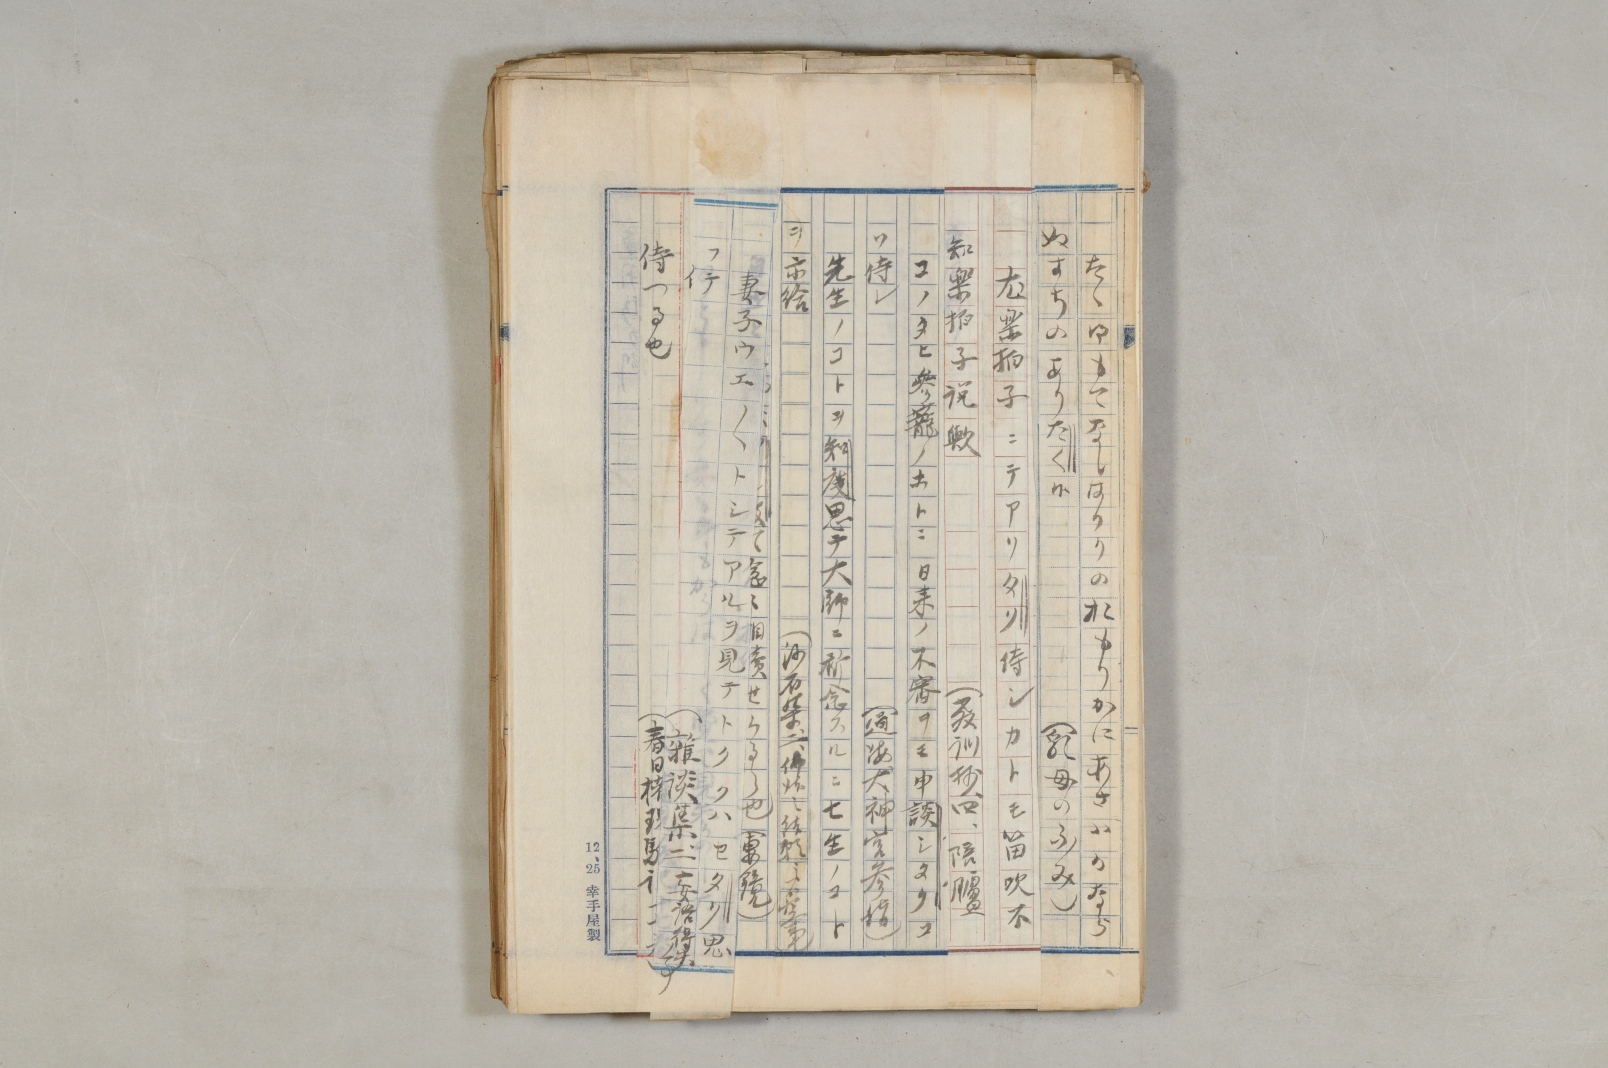 たゝゆもてなしはかりのおもりかにあさはかなら
ぬすちのありたくや
(乳母のふみ)
左楽拍子ニテアリタリ侍シカトモ笛吹不
知楽拍子説歟
(教訓抄四、陪臚
コノタヒ参籠ノホトニ日来ノ不審ヲモ申談シタクコ
ソ侍レ
(通海大神宮参詣)
先生ノコトヲ知度思テ大師ニ祈念スルニ七生ノコト
ヲ示給
(沙石集二
て急に自責せらるゝ也
(妻鏡)
妻子ウエ〱トシテアルヲ見テトククハセタク思
フテ
侍つる也
(雑談集二、妄語得失事
(春日
12、25 幸手屋製